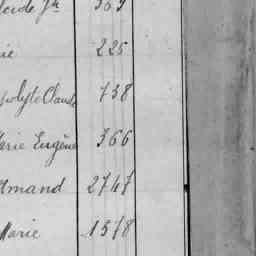 369
ie 225
polyte Claude 738
arie Eugène 366
Armand 2747
Marie 1578